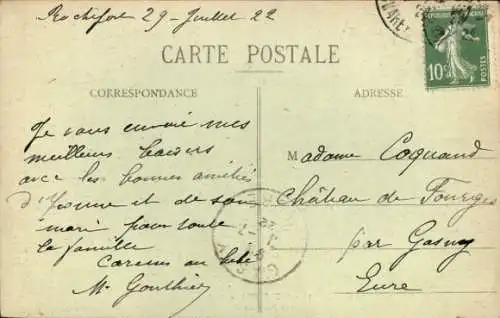 Rochefort 29 Juillet 22
CARTE POSTALE
CORRESPONDANCE
ADRESSE
10c
POSTES
Je vous envoie mes
meilleurs baisers
avec les bonnes amitiés
d'Yvonne et de son
mari pour toute
la famille
Caresses au bébé
M. Gonthier
Madame Coquand
Château de Fourges
par Gasny
Eure